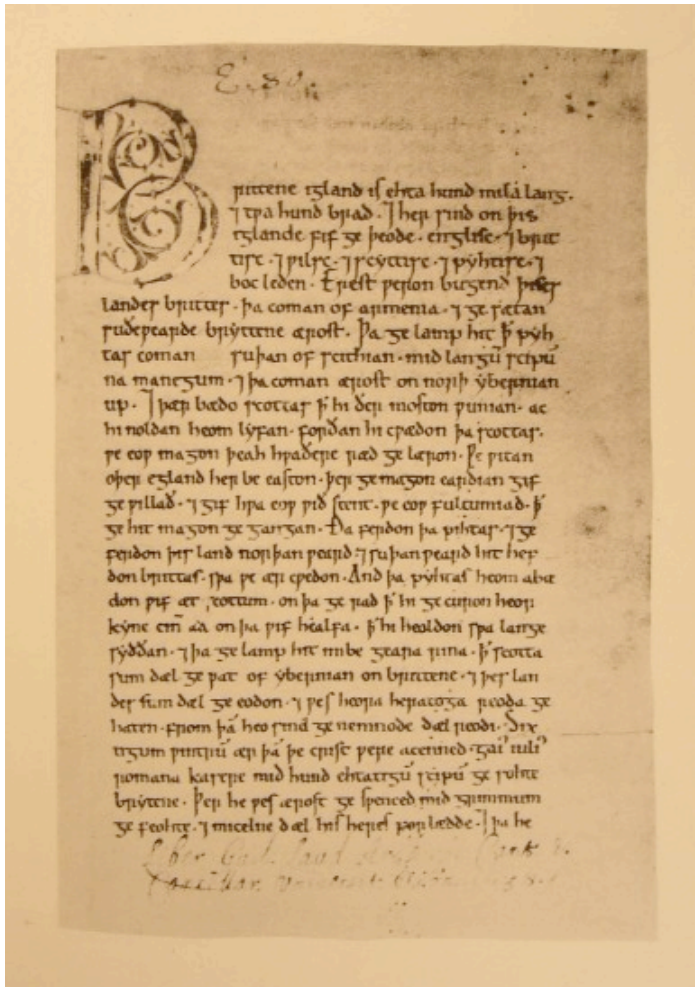 E. 80.
Brittene igland is ehta hund mila lang.
⁊ tƿa hund brad. ⁊ her sind on þis
iglande fif ge þeode. englisc. ⁊ brit
tisc. ⁊ ƿilsc. ⁊ scyttisc. ⁊ pyhtisc. ⁊
boc leden. Erest ƿeron bugend þises
landes brittes. þa coman of armenia. ⁊ ge sætan
suðeƿearde bryttene ærost. Þa ge lamp hit ꝥ pyh
tas coman suþan of scithian. mid langū scipū
na manegum. ⁊ þa coman ærost on norþ ybernian
up. ⁊ þær bædo scottas ꝥ hi ðer moston ƿunian. ac
hi noldan heom lyfan. forðan hi cƿædon þa scottas.
ƿe eoƿ magon þeah hƿaðere ræd ge læron. Ƿe ƿitan
oþer egland her be easton. þer ge magon eardian gif
ge ƿillað. ⁊ gif hƿa eoƿ ƿið stent. ƿe eoƿ fultumiað. ꝥ
ge hit magon ge gangan. Ða ferdon þa pihtas. ⁊ ge
ferdon þis land norþan ƿeard. ⁊ suþan ƿeard hit hef
don brittas. sƿa ƿe ær cƿedon. And þa pyhtas heom abæ
don ƿif æt scottum. on þa ge rad ꝥ hi ge curon heor
kyne cīn aa on þa ƿif healfa. ꝥ hi heoldon sƿa lange
syððan. ⁊ þa ge lamp hit imbe geara rina. ꝥ scotta
sum dæl ge ƿat of ybernian on brittene. ⁊ þes lan
des sum dæl ge eodon. ⁊ ƿes heora heratoga reoda ge
haten. from þā heo sind ge nemnode dæl reodi. Six
tigum ƿintrū ær þā þe crist ƿere acenned. gaiꝰ iuliꝰ
romana kasere mid hund ehtatigū scipū ge sohte
brytene. Þer he ƿes ærost ge sƿenced mid grimmum
ge feohte. ⁊ micelne dæl his heres forlædde. ⁊ þa he
Liber Guil. Laud